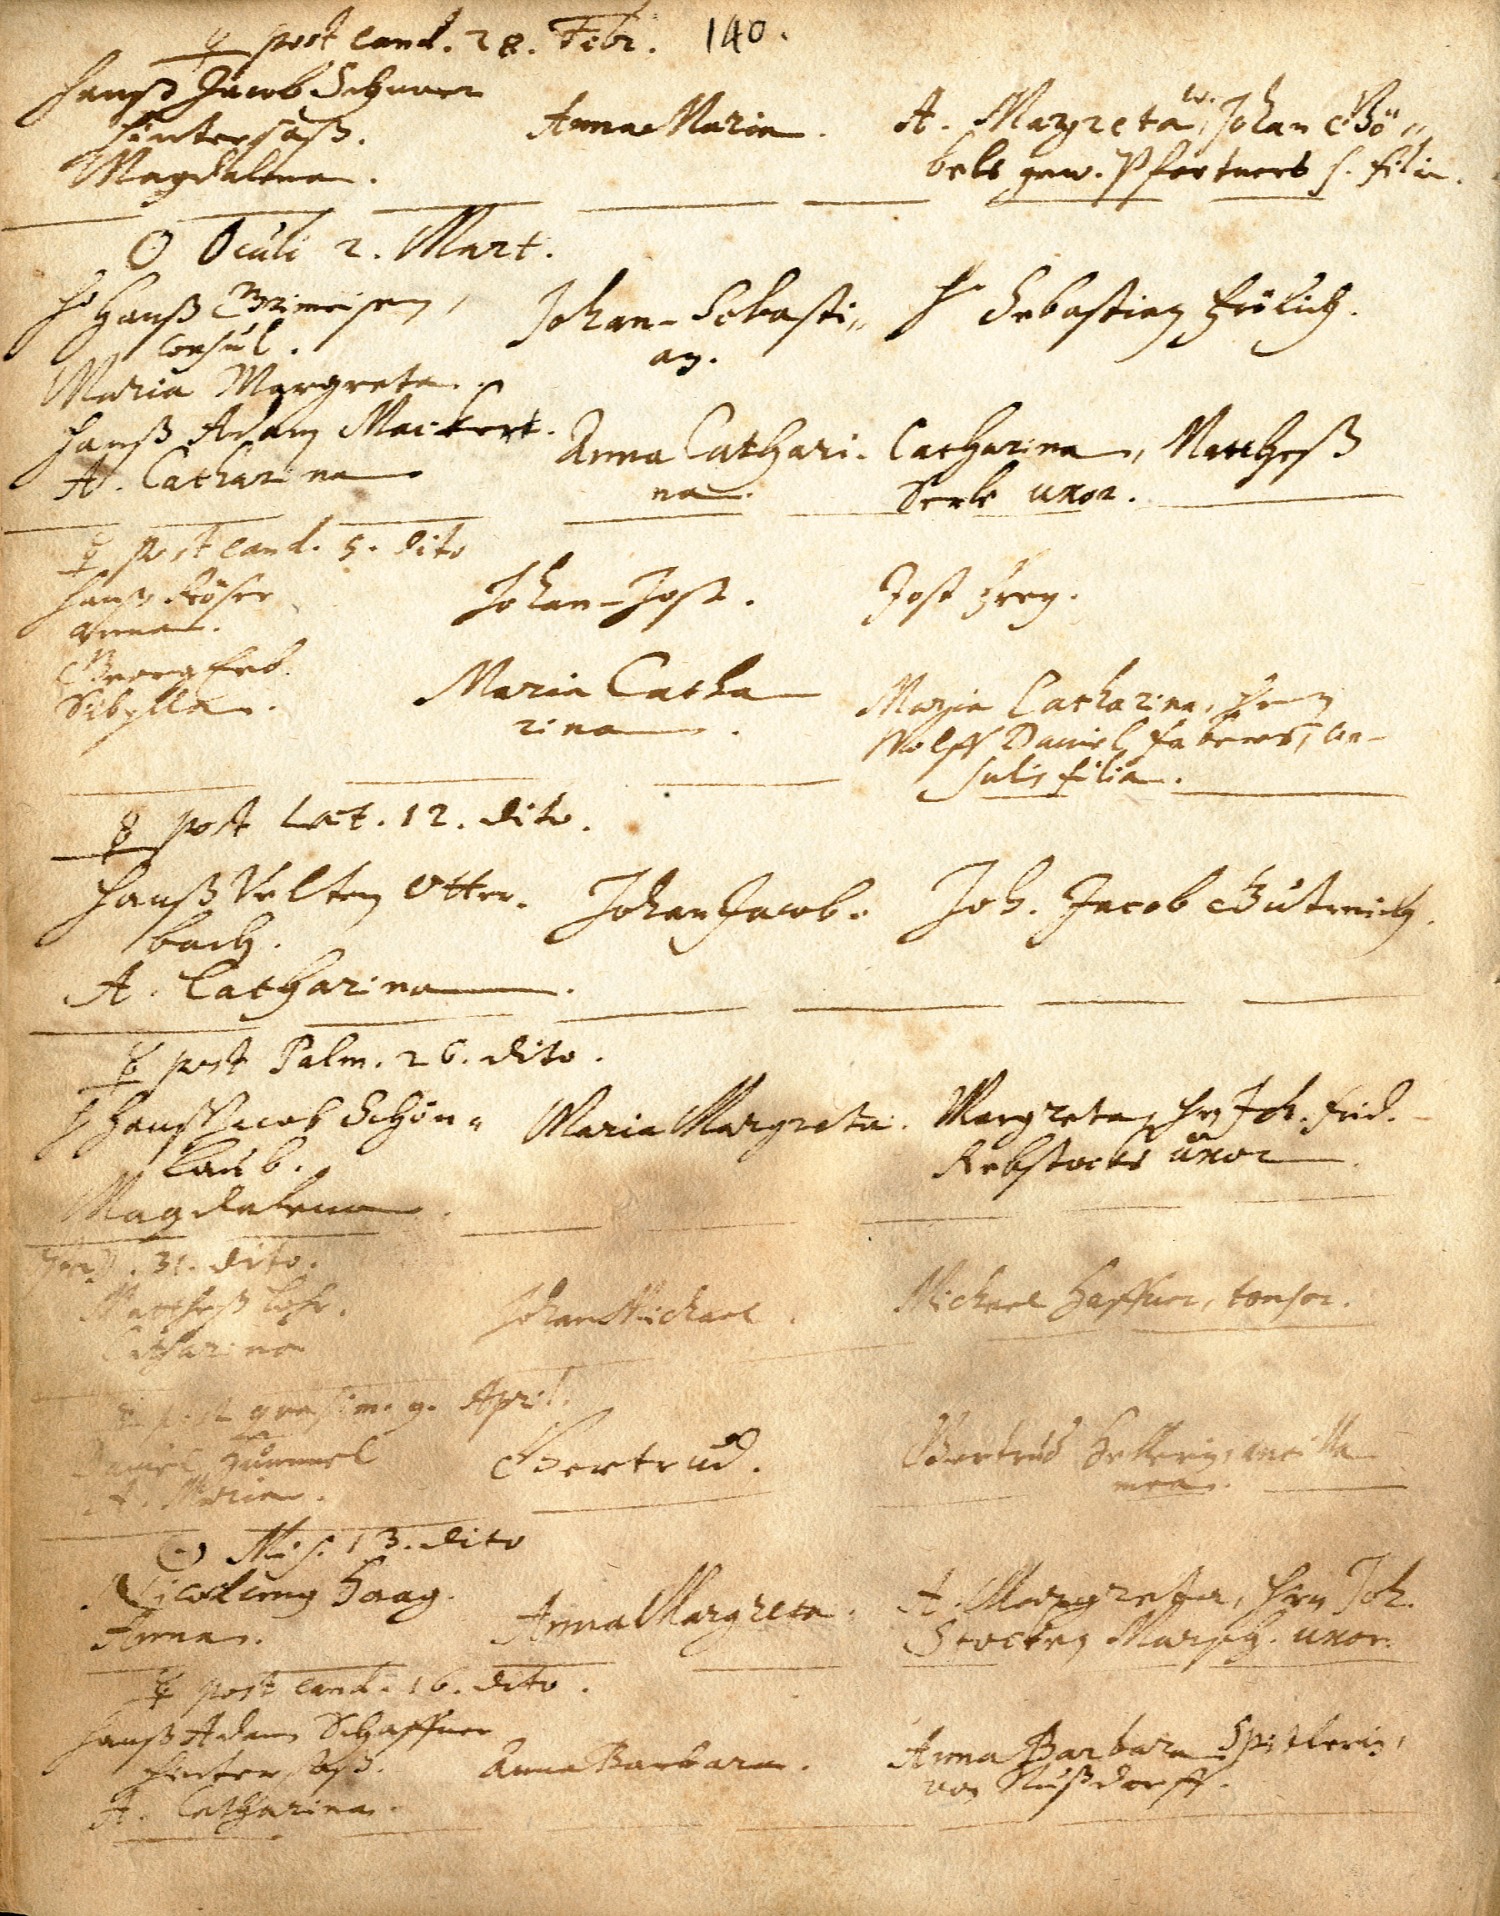 ☿ post eand. 28. Febr. 140.
Hanß Jacob
Hintersaß.
Magdalena.
Anna Maria.
A. Margreta, w. Johan Gö„
bels gew. Pfortners s. filia.
☉ Oculi 2. Mart.
Hr Hanß Grimeisen,
Consul.
Maria Margreta.
Johan-Sebasti„
an.
Hr Sebastian Frölich.
Hanß Adam Mackert.
A. Catharina
Anna Cathari-
na.
Catharina, Mattheß
uxor.
☿ post eand. 5. dito
Hanß Röser
Anna.
Johan-Jost.
Jost Frey.
Georg Erb.
Sibylla.
Maria Catha
rina.
Maria Catharina,
Wolff Daniel Fabers, Con-
sulis filia.
☿ post Laet. 12. dito.
Hanß Velten Otter-
bach.
A. Catharina.
Johan Jacob.
Joh. Jacob Gütreich.
☿ post Palm. 26. dito.
H Hanß Jacob Schön„
laub.
Magdalena.
Maria Margreta.
Margreta, Hrn Joh. Frid.
Rebstocks uxor.
31. dito.
Mattheß
Catharina
Johan Michael.
Michael Haffner, tonsor.
☿ post quasim. 9. April.
Daniel Hummel
A. Maria.
Gertrud.
Gertrud ancilla
mea.
☉ Mis. 13. dito
Nicolaus Haag.
Anna.
Anna Margreta.
A. Margreta, Hrn Joh.
uxor.
☿ post eand. 16. dito.
Hanß Adam Schaffner
Hintersaß.
A. Catharina.
Anna Barbara.
Anna Barbara Spitlerin,
von Nußdorff.